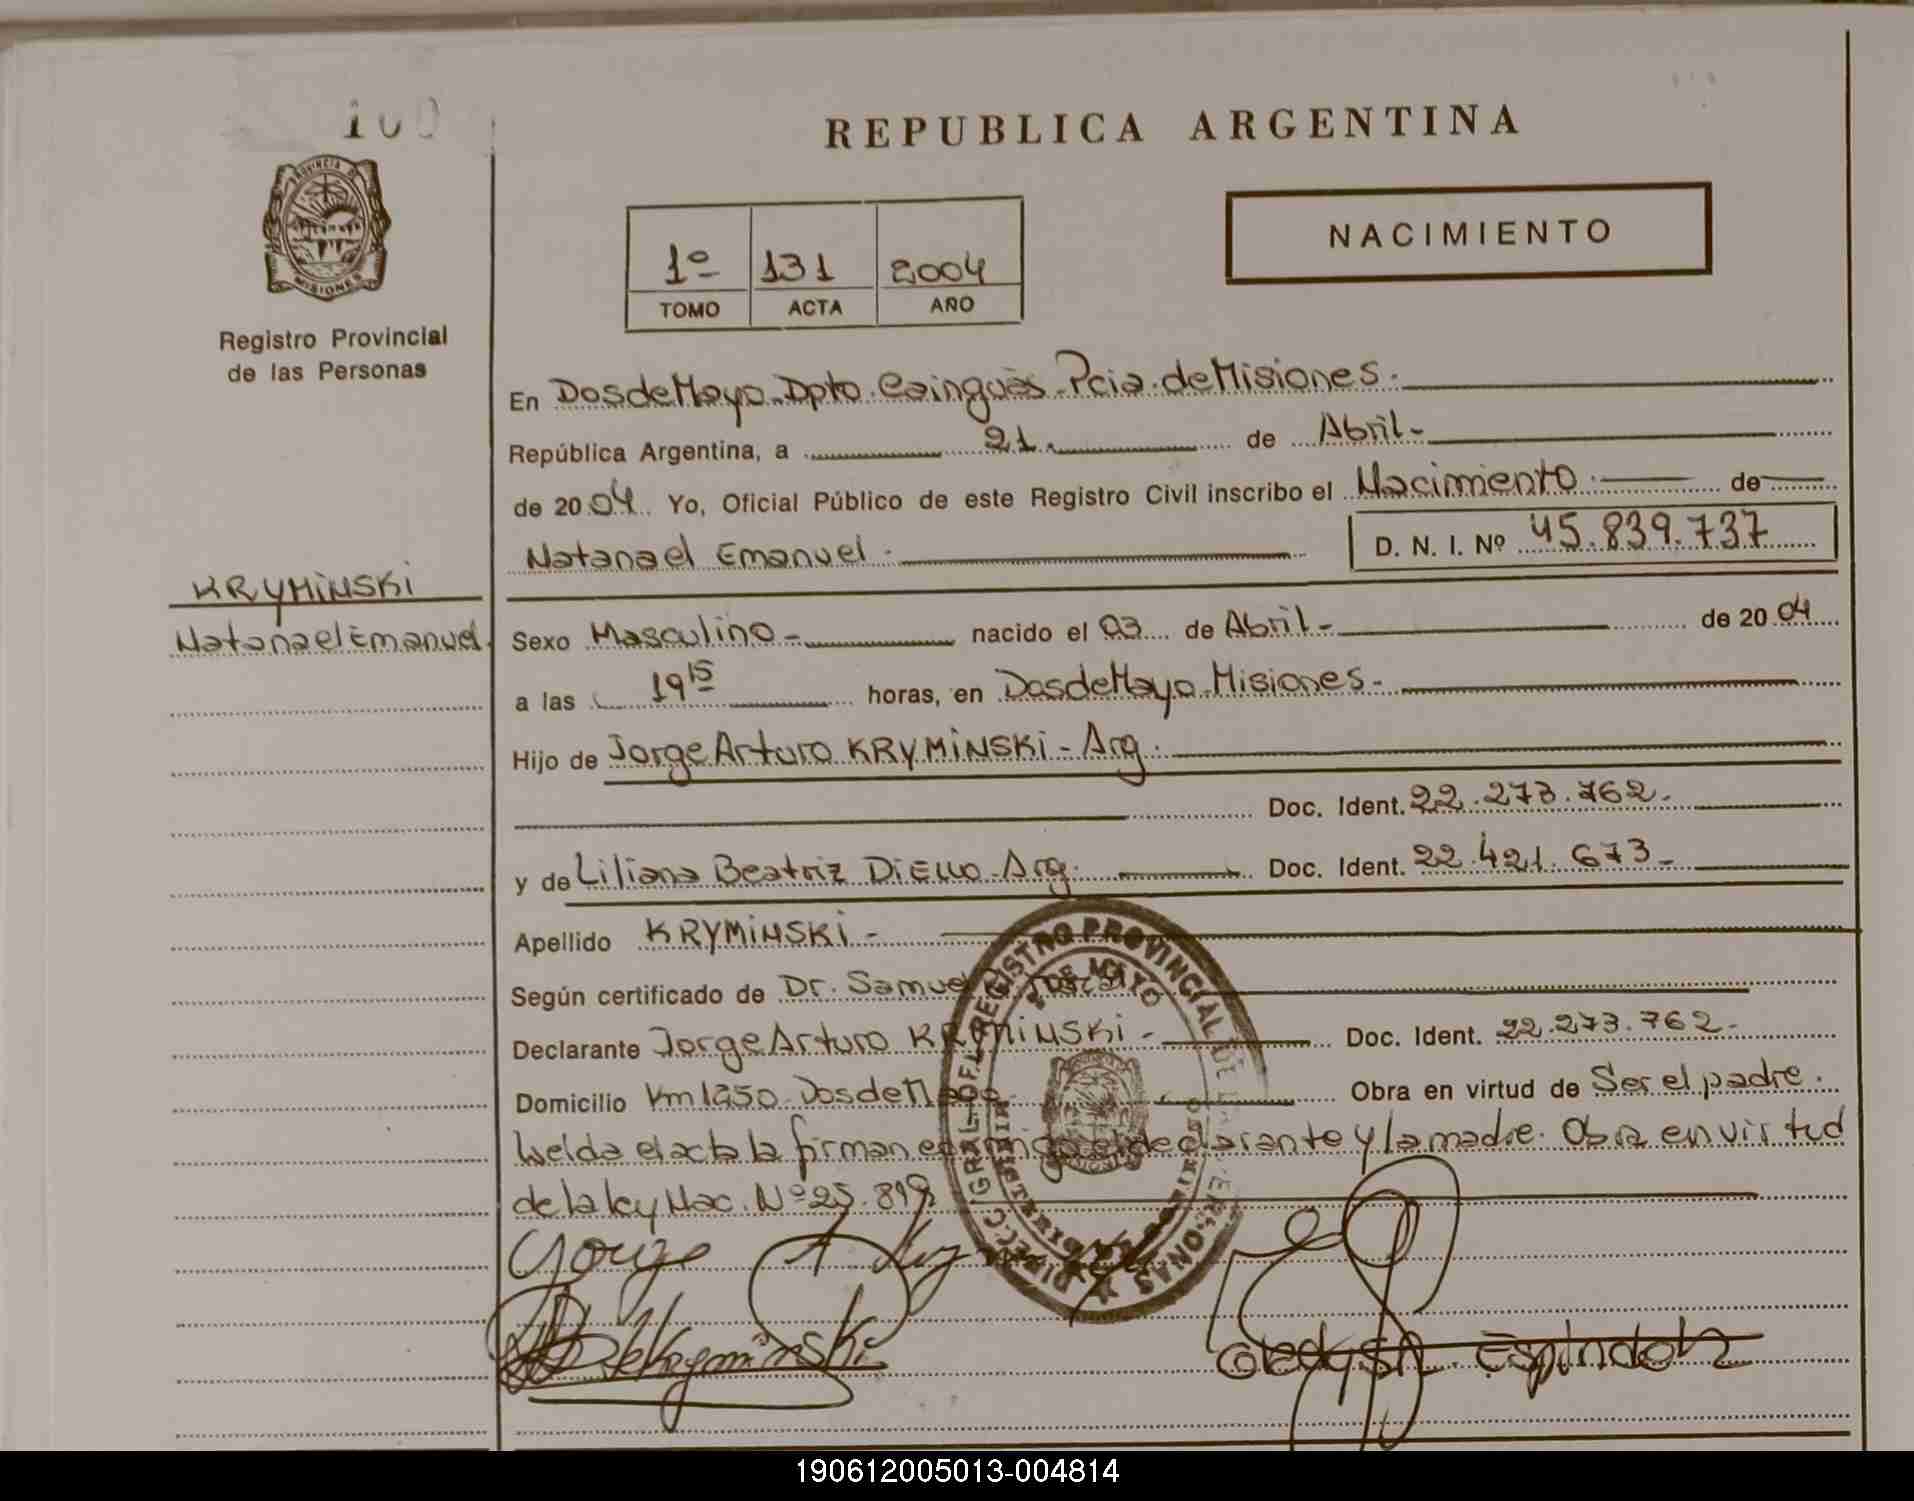 100
REPUBLICA ARGENTINA
PROVINCIA DE
MISIONES
Registro Provincial
de las Personas
1º 131 2004
TOMO ACTA AÑO
NACIMIENTO
En Dos de Mayo. Dpto. Cainguás. Pcia. de Misiones.
República Argentina, a 21. de Abril-
de 2004. Yo, Oficial Público de este Registro Civil inscribo el Nacimiento. de
Natanael Emanuel. D. N. I. Nº 45.839.737
KRYMiNSKi
Natanael Emanuel.
Sexo Masculino- nacido el 03 de Abril- de 2004
a las 19 15 horas, en Dos de Mayo. Misiones.-
Hijo de Jorge Arturo KRYMiNSKi - Arg.
Doc. Ident. 22.273.762.
y de Liliana Beatriz Arg. Doc. Ident. 22.421.673-
Apellido KRYMiNSKi -
Según certificado de Dr. Samuel
Declarante Jorge Arturo KRYMiNSKi - Doc. Ident. 22.273.762-
Domicilio Km 1250. Dos de Mayo Obra en virtud de Ser el padre.
Leida el acta la firman conmigo el declarante y la madre. Obra en virtud
de la ley Nac. Nº 25.819
DIREC. GRAL. DEL REGISTRO PROVINCIAL DE LAS PERSONAS
2 DE MAYO
MISIONES
Jorge A
Kryminski
Gladys Espindola
190612005013-004814